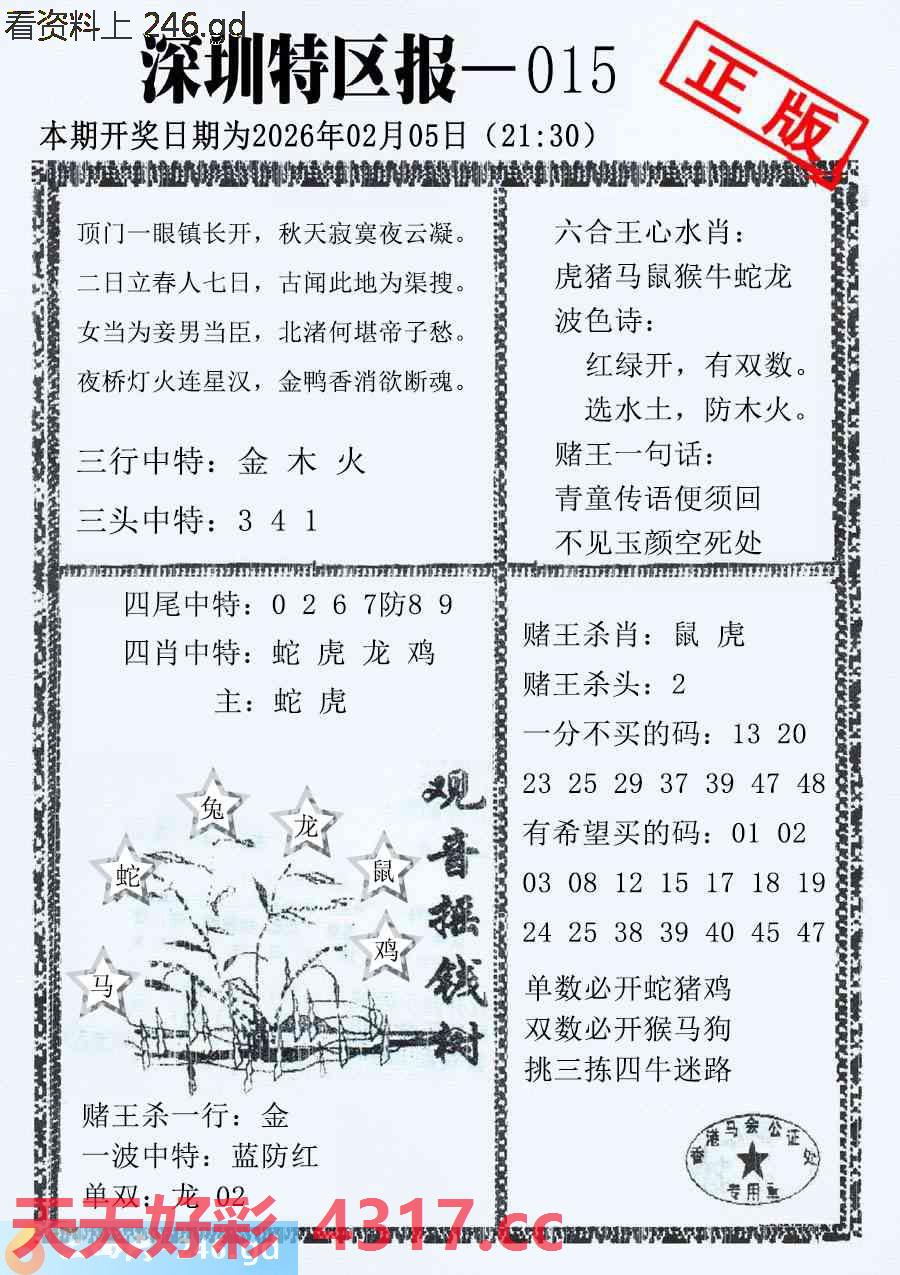 看资料上 246.gd
深圳特区报—015
正版
本期开奖日期为2026年02月05日（21:30）
顶门一眼镇长开，秋天寂寞夜云凝。
二日立春人七日，古闻此地为渠搜。
女当为妾男当臣，北渚何堪帝子愁。
夜桥灯火连星汉，金鸭香消欲断魂。
三行中特：金 木 火
三头中特：3 4 1
六合王心水肖：
虎猪马鼠猴牛蛇龙
波色诗：
红绿开，有双数。
选水土，防木火。
赌王一句话：
青童传语便须回
不见玉颜空死处
四尾中特：0 2 6 7防8 9
四肖中特：蛇 虎 龙 鸡
主：蛇 虎
观音摇钱树
兔
龙
蛇
鼠
鸡
马
赌王杀一行：金
一波中特：蓝防红
单双：龙 02
赌王杀肖：鼠 虎
赌王杀头：2
一分不买的码：13 20
23 25 29 37 39 47 48
有希望买的码：01 02
03 08 12 15 17 18 19
24 25 38 39 40 45 47
单数必开蛇猪鸡
双数必开猴马狗
挑三拣四牛迷路
香港马会公证处
专用章
天天好彩 4317.cc
246.gd